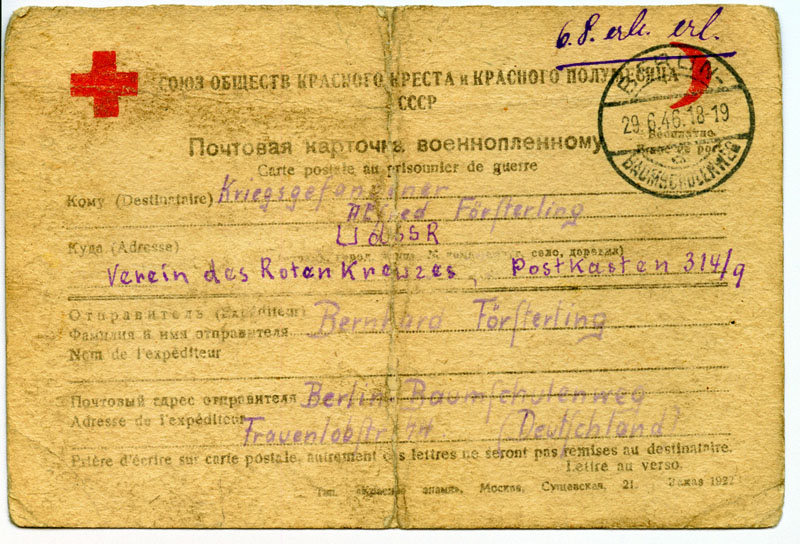 6.8. erh. erl.
СОЮЗ ОБЩЕСТВ КРАСНОГО КРЕСТА и КРАСНОГО ПОЛУМЕСЯЦА
СССР
BERLIN-
29.6.46.18-19
BAUMSCHULENWEG
Бесплатно
Franc de port
Почтовая карточка военнопленному
Carte postale au prisonnier de guerre
Кому (Destinataire) Kriegsgefangener
Alfred Försterling
Куда (Adresse) UdSSR
село, деревня)
Verein des Roten Kreuzes, Postkasten 314/9
Отправитель (Expéditeur)
Фамилия и имя отправителя Bernhard Försterling
Nom de l'expéditeur
Почтовый адрес отправителя Berlin Baumschulenweg
Adresse de l'expéditeur Frauenlobstr (Deutschland)
Prière d'écrire sur carte postale, autrement des lettres ne seront pas remises au destinataire.
Lettre au verso.
Тип. «Красное знамя», Москва, Сущевская, 21. Заказ 1922